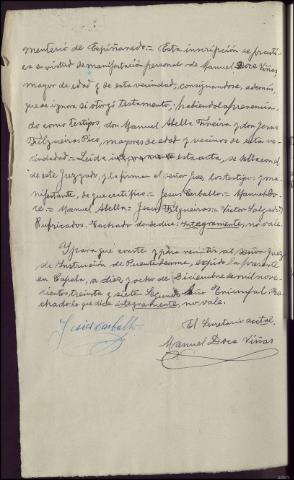 menterio de Espiñaredo.= Esta inscripción se practi
ca en virtud de manifestación personal de Manuel Doce Viñas
mayor de edad y de esta vecindad; consignandose, además,
que se ignora si otorgó testamento; habiendo presencia
do como testigos, don Manuel Abella Ferreira y don Jesus
Filgueiras Pico, mayores de edad y vecinos de esta ve
cindad.= Leida integramente esta acta, se sella con el
de este Juzgado, y la firma el señor Juez los testigos y ma
nifestante, de que certifico.= Jesus Carballo.= Manuel Do
ce.= Manuel Abella.= Jesus Filgueiras.= Victor Salgado.
Rubricados. Tachado donde dice: Integramente, no vale.
Y para que conste y para remitir al Señor Juez
de Instrucción de Puentedeume, expido la presente
en Capela, a diez y ocho de Diciembre de mil nove
cientos treinta y siete. Segundo Año Triunfal. Ta
chado lo que dice integramente, no vale.
Jesus Carballo
El Secretario acctal.
Manuel Doce Viñas